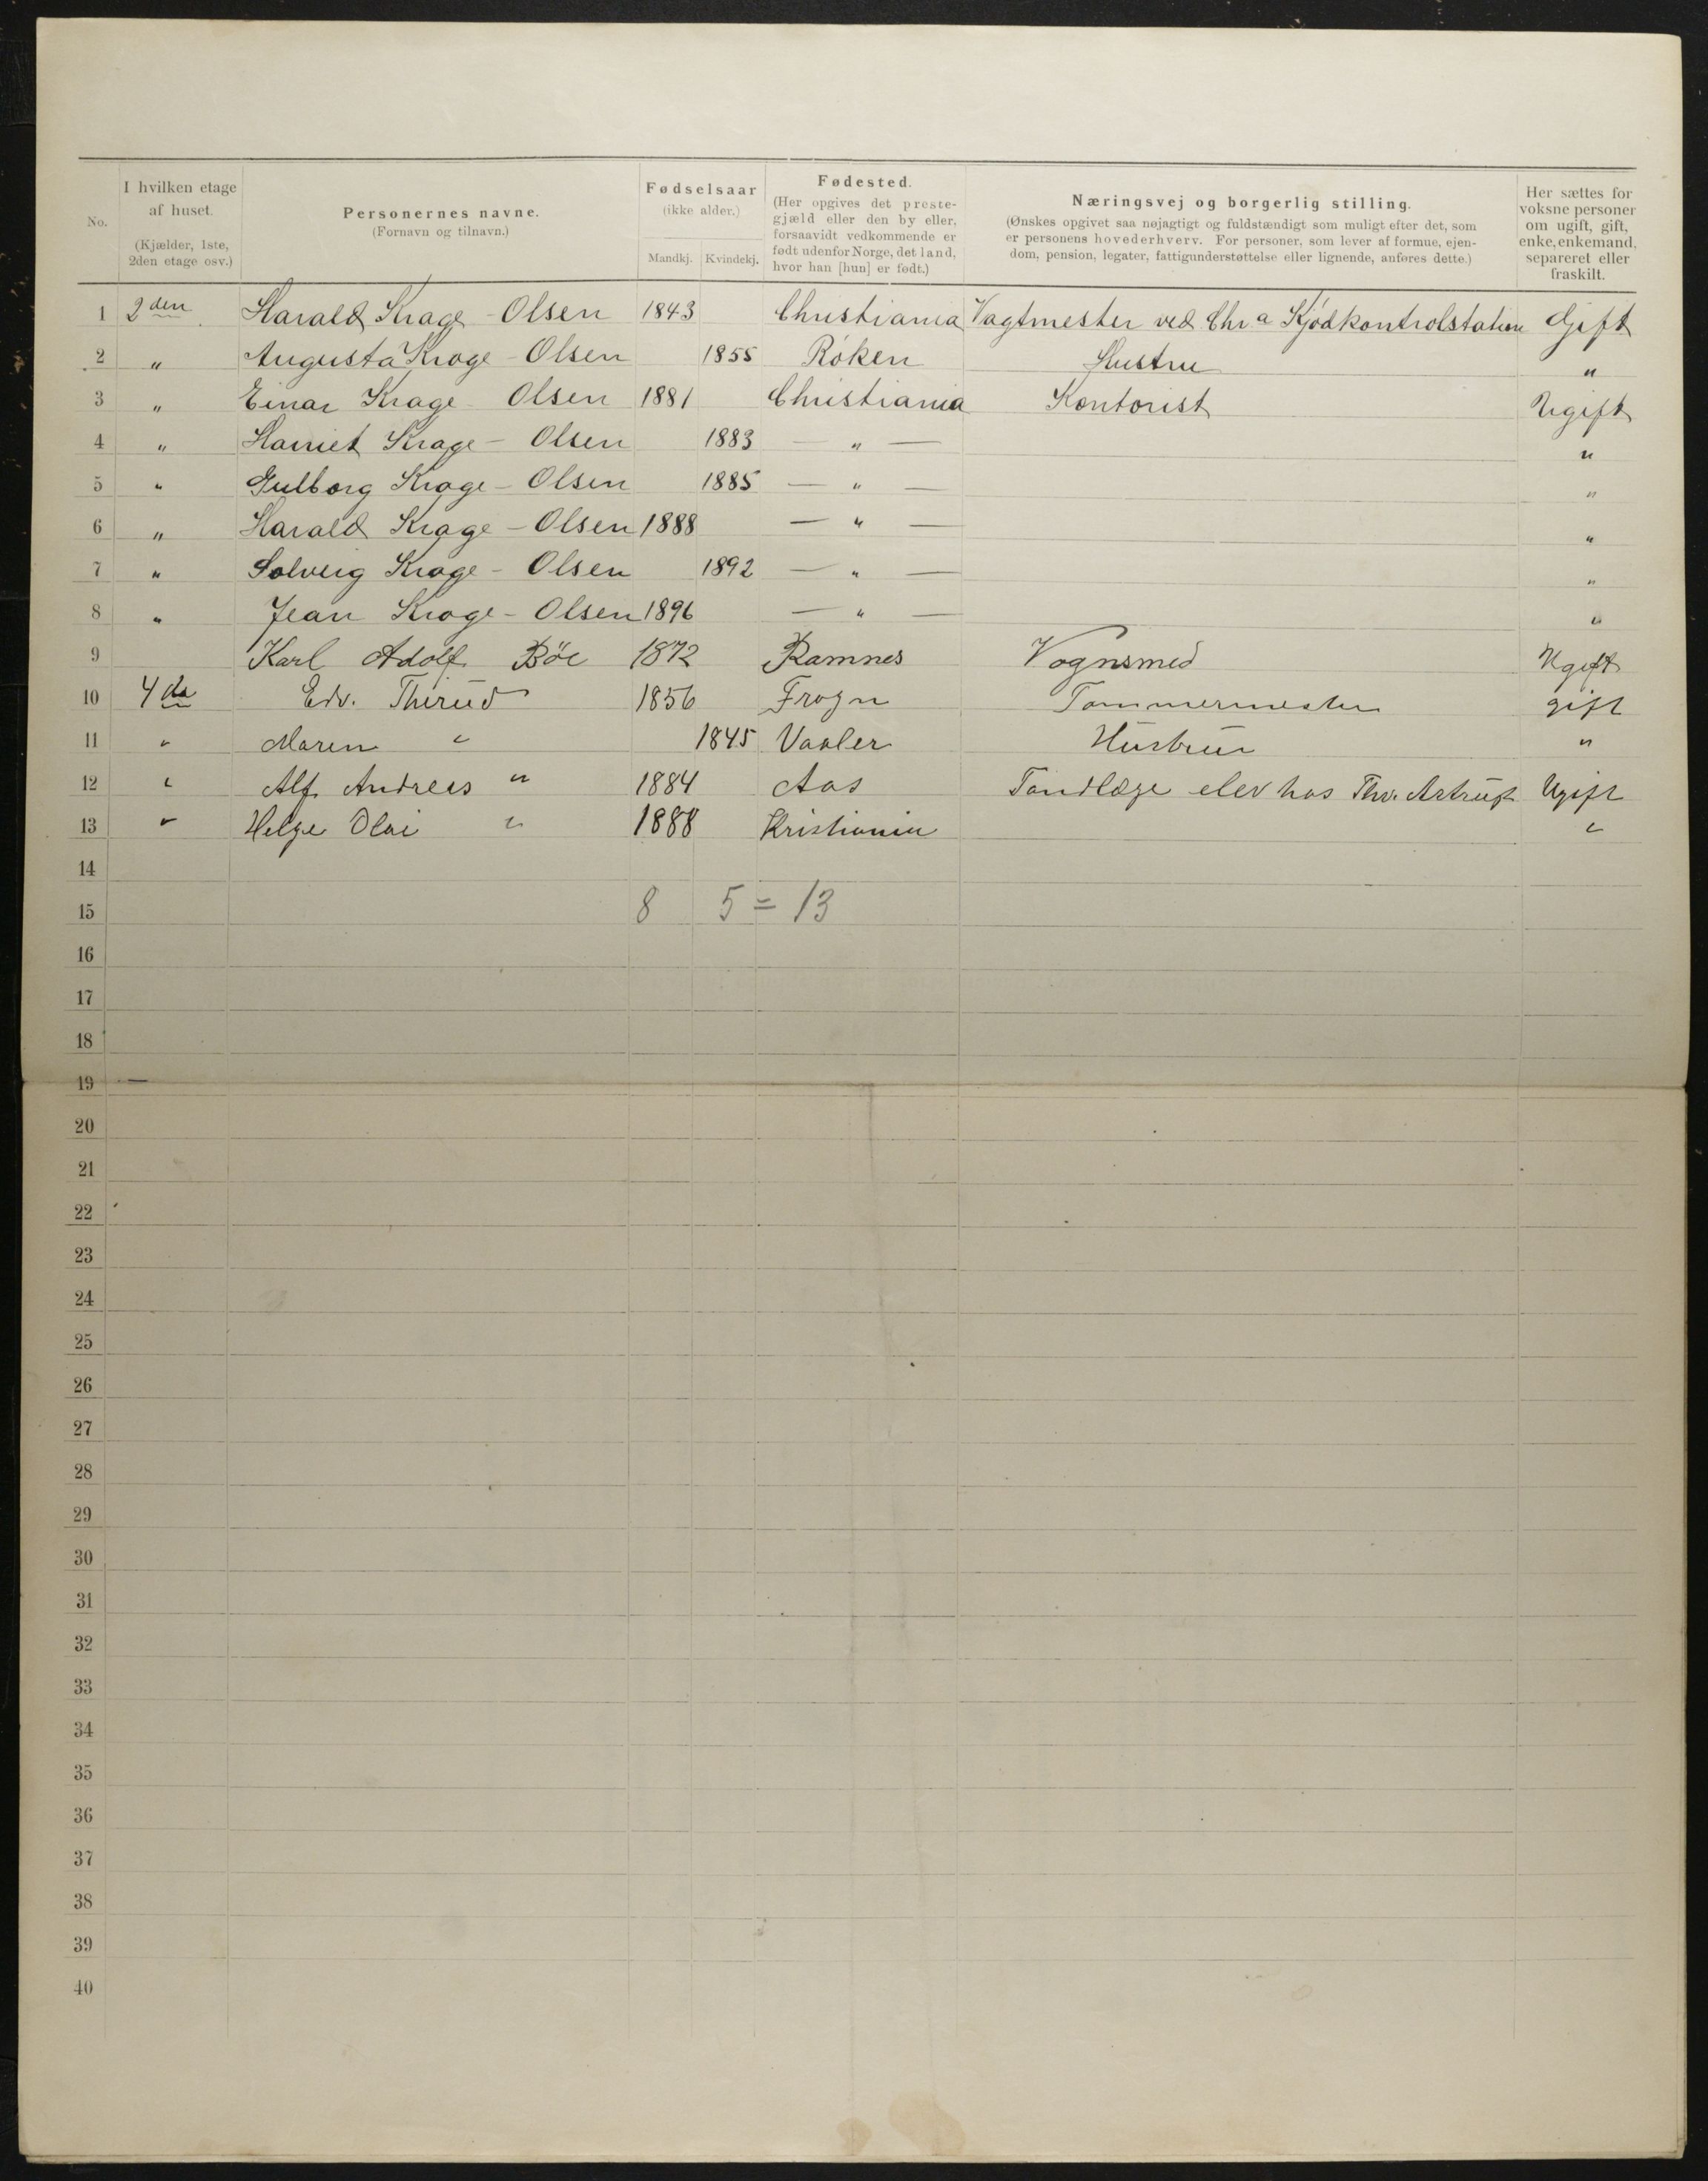 No.
I hvilken etage af huset. (Kjælder, 1ste, 2den etage osv.)
Personernes navne. (Fornavn og tilnavn.)
Fødselsaar (ikke alder.) Mandkj. Kvindekj.
Fødested. (Her opgives det prestegjæld eller den by eller, forsaavidt vedkommende er født udenfor Norge, det land, hvor han [hun] er født.)
Næringsvej og borgerlig stilling. (Ønskes opgivet saa nøjagtigt og fuldstændigt som muligt efter det, som er personens hovederhverv. For personer, som lever af formue, ejendom, pension, legater, fattigunderstøttelse eller lignende, anføres dette.)
Her sættes for voksne personer om ugift, gift, enke, enkemand, separeret eller fraskilt.
1 2den Harald Krage-Olsen 1843 Christiania Vagtmester ved Chra Kjødkontrolstation Gift
2 " Augusta Krage-Olsen 1855 Røken Hustru "
3 " Einar Krage Olsen 1881 Christiania Kontorist Ugift
4 " Harriet Krage-Olsen 1883 — " — "
5 " Gulborg Krage-Olsen 1885 — " — "
6 " Harald Krage-Olsen 1888 — " — "
7 " Solveig Krage-Olsen 1892 — " — "
8 " Jean Krage-Olsen 1896 — " — "
9 Karl Adolf Böe 1872 Ramnes Vognsmed Ugift
10 4de Edv. Therud 1856 Frogn Tømmermester gift
11 " Maren " 1845 Vaaler Hustru "
12 " Alf Andreas " 1884 Aas Tandlæge elev hos Thv. Astrup Ugift
13 " Helge Olai " 1888 Kristiania "
14
15 8 5 = 13
16
17
18
19 —
20
21
22
23
24
25
26
27
28
29
30
31
32
33
34
35
36
37
38
39
40